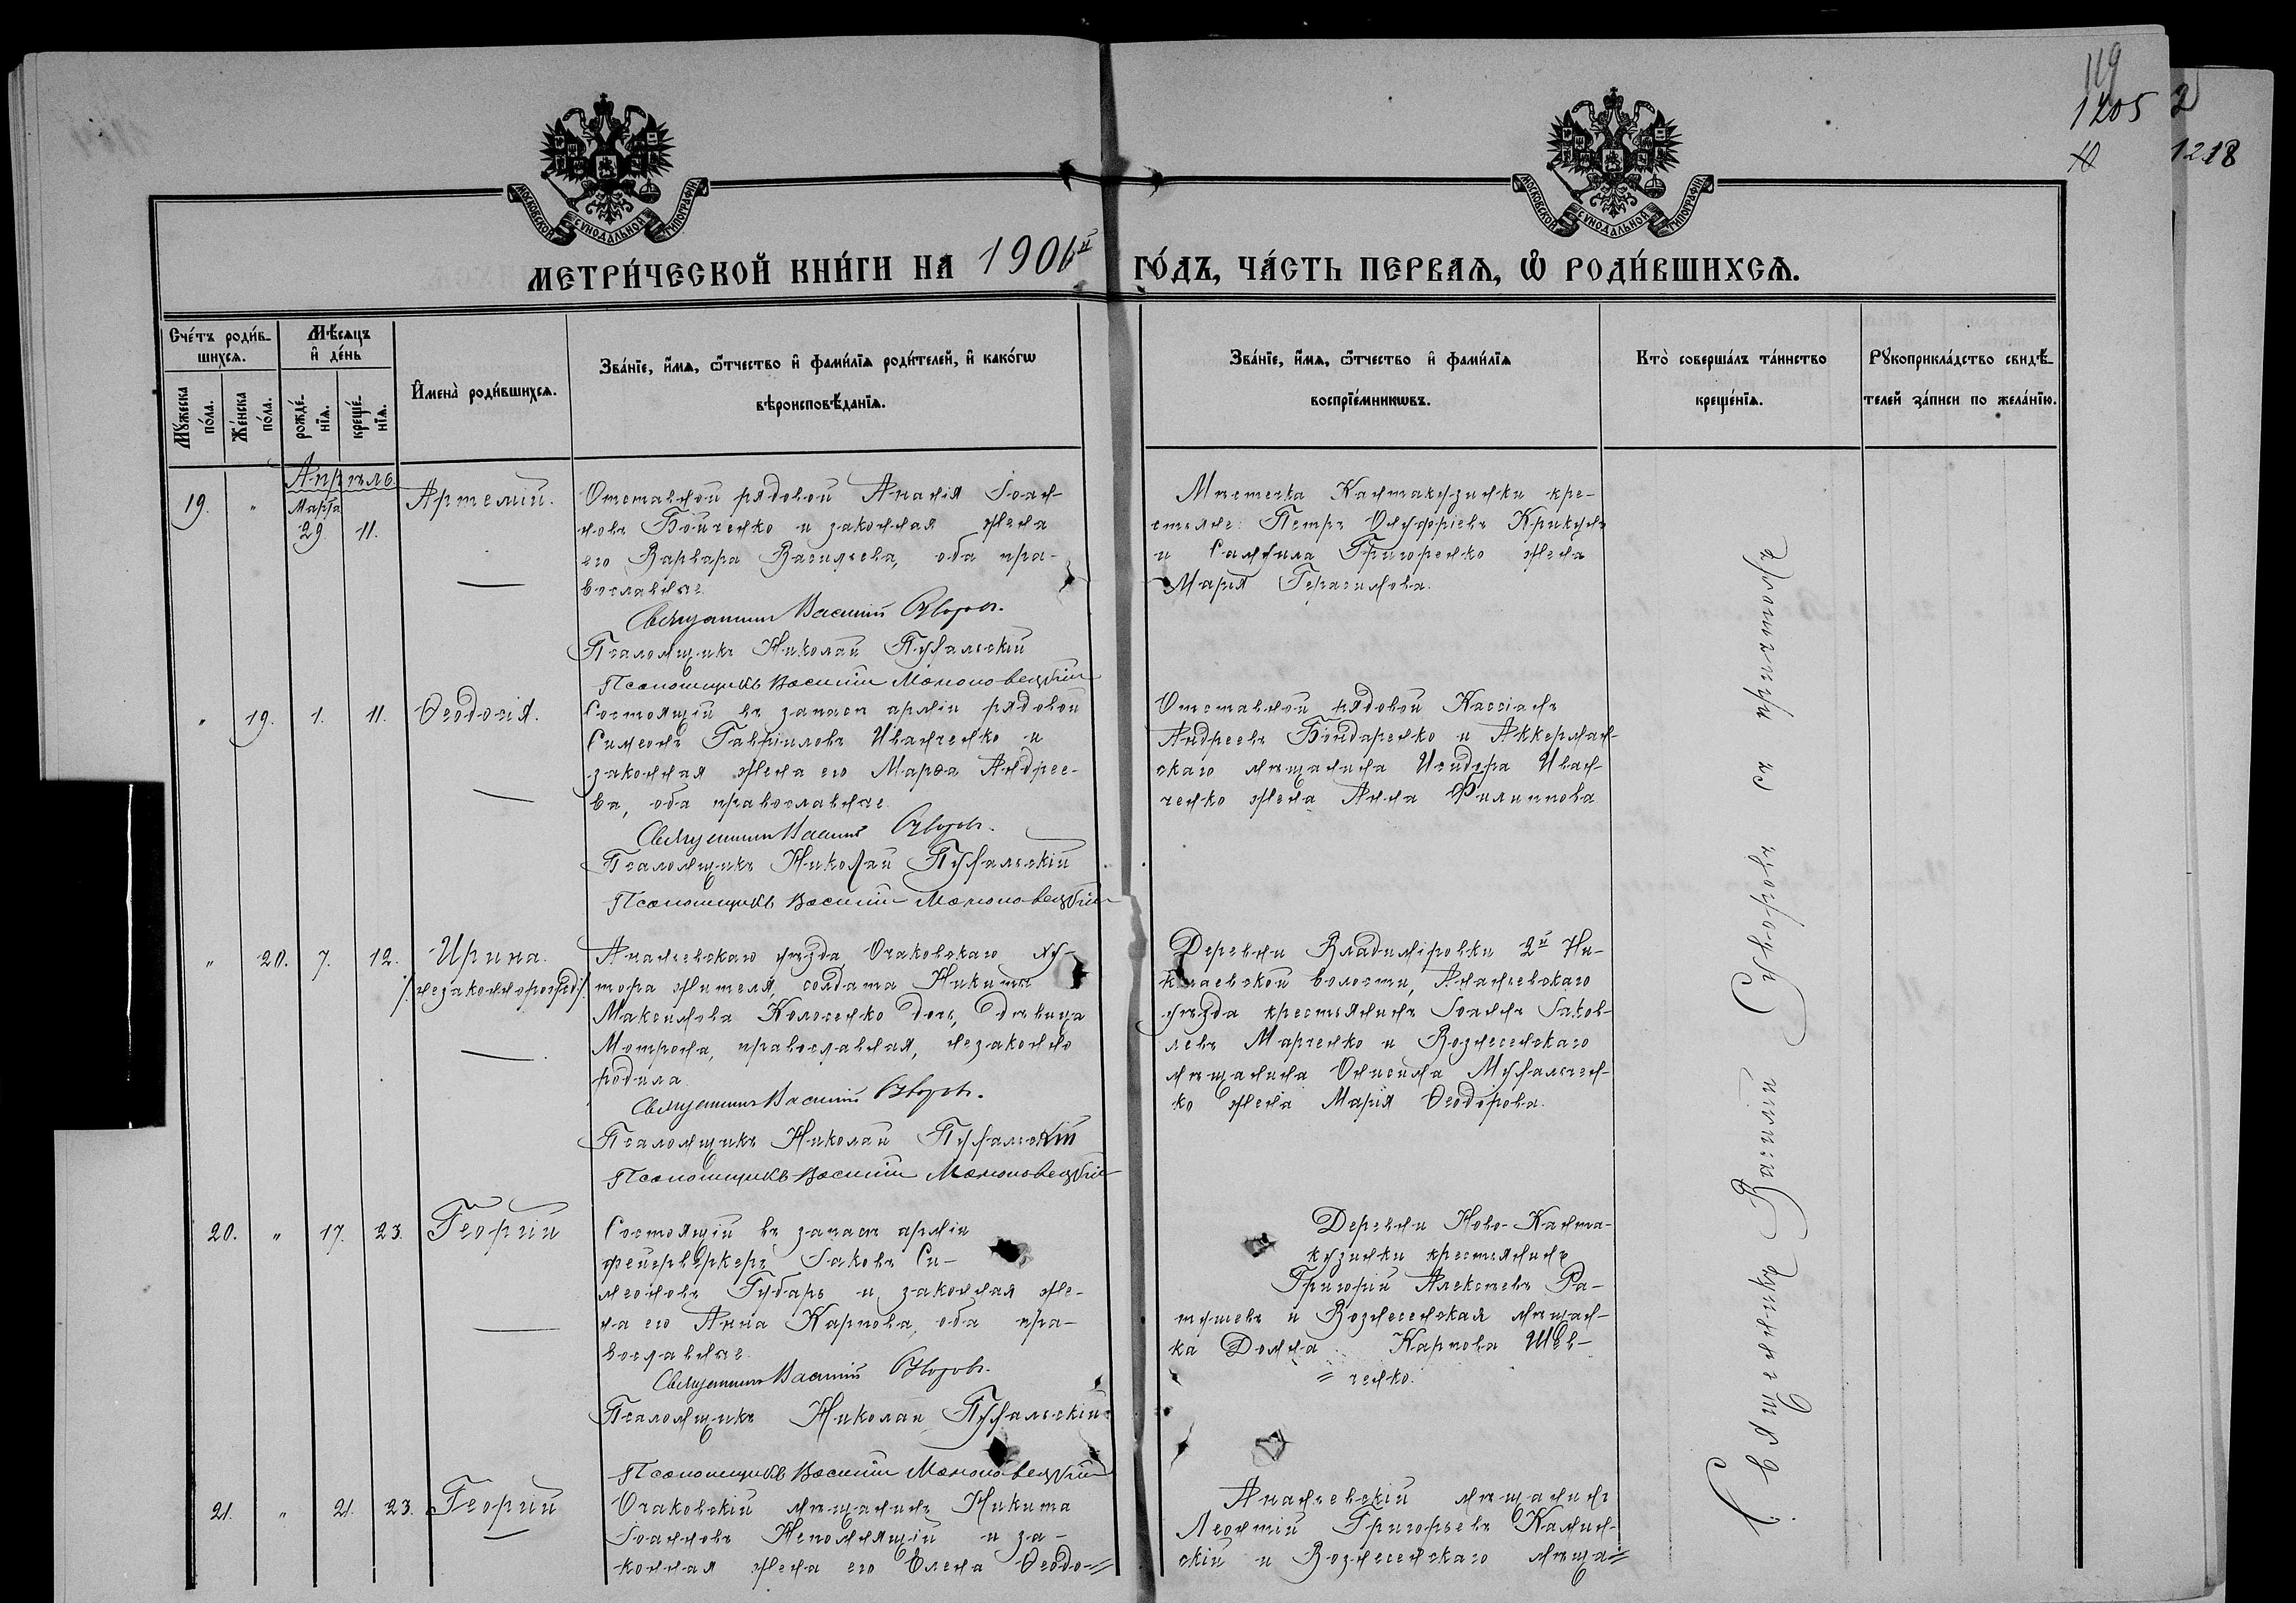 119
1205
2
1218
МОСКОВСКОЙ СѴНОДАЛЬНОЙ ТИПОГРАФІИ
МОСКОВСКОЙ СѴНОДАЛЬНОЙ ТИПОГРАФІИ
МЕТРИ́ЧЕСКОЙ КНИ́ГИ НА 1906й ГО́ДЪ, ЧА́СТЬ ПЕРВАЯ, Ѡ РОДИ́ВШИХСЯ.
Счéтъ роди́в-
шихся.
Мѣ́сяцъ
и де́нь
Мꙋ́жеска по́ла.
Же́нска по́ла.
рожде́-
нїя.
креще́-
нїя.
Имена̀ роди́вшихся.
Зва́нїе, и́мя, ѻ́тчество и фами́лїя роди́телей, и како́гѡ
вѣроисповѣ́данїя.
Зва́нїе, и́мя, ѻ́тчество и фами́лїя
воспрїе́мникѡвъ.
Кто̀ соверша́лъ та́инство
креще́нїя.
Рꙋкоприкла́дство свидѣ́-
телей за́писи по жела́нїю.
Апрѣль
19. " Марта 29. 11. Артемій.
Отставной рядовой Ананія Іоан-
новъ Бойченко и законная жена
его Варвара Васильева, оба пра-
вославные.
Священникъ Василій Суворовъ.
Псаломщикъ Николай Пухальскій
Псаломщикъ Василій
Мѣстечка Кантакузинки кре-
стьяне: Петръ Онуфріевъ Крикунъ
и Самуила Григоренко жена
Марія Герасимова.
" 19. 1. 11. Ѳеодосія.
Состоящій въ запасѣ арміи рядовой
Симеонъ Гавріиловъ Иванченко и
законная жена его Марѳа Андрее-
ва, оба православные.
Священникъ Василій Суворовъ.
Псаломщикъ Николай Пухальскій
Псаломщикъ Василій
Отставной рядовой Кассіанъ
Андреевъ Бондаренко и Аккерман-
скаго мѣщанина Исидора Иван-
ченко жена Анна Филиппова
" 20. 7. 12. Ирина.
/незаконнорожд/.
Ананьевскаго уѣзда, Очаковскаго ху-
тора жителя, солдата Никиты
Максимова Колосенко дочь, дѣвица
Мотрона, православная, незаконно
родила.
Священникъ Василій Суворовъ.
Псаломщикъ Николай Пухальскій
Псаломщикъ Василій
Деревни Владиміровки 2й Ни-
колаевской волости, Ананьевскаго
уѣзда крестьянинъ Іоаннъ Іаков-
левъ Марченко и Вознесенскаго
мѣщанина Онисима Мухальчен-
ко жена Марія Ѳеодорова.
20. " 17. 23. Георгій
Состоящій въ запасѣ арміи
фейерверкеръ Іаковъ Си-
меоновъ Губарь и законная же-
на его Анна Карпова, оба пра-
вославные.
Священникъ Василій Суворовъ.
Псаломщикъ Николай Пухальскій
Псаломщикъ Василій
Деревни Ново-Канта-
кузинки крестьянинъ
Григорій Алексѣевъ Ра-
тушевъ и Вознесенская мѣщан-
ка Домна Карпова Шев-
= ченко.
21. " 21. 23. Георгій
Очаковскій мѣщанинъ Никита
Іоанновъ Непомнящій и за-
конная жена его Елена Ѳеодо=
Ананьевскій мѣщанинъ
Леонтій Григорьевъ Калин-
скій и Вознесенскаго мѣща=
Священникъ Василій Суворовъ съ причтомъ